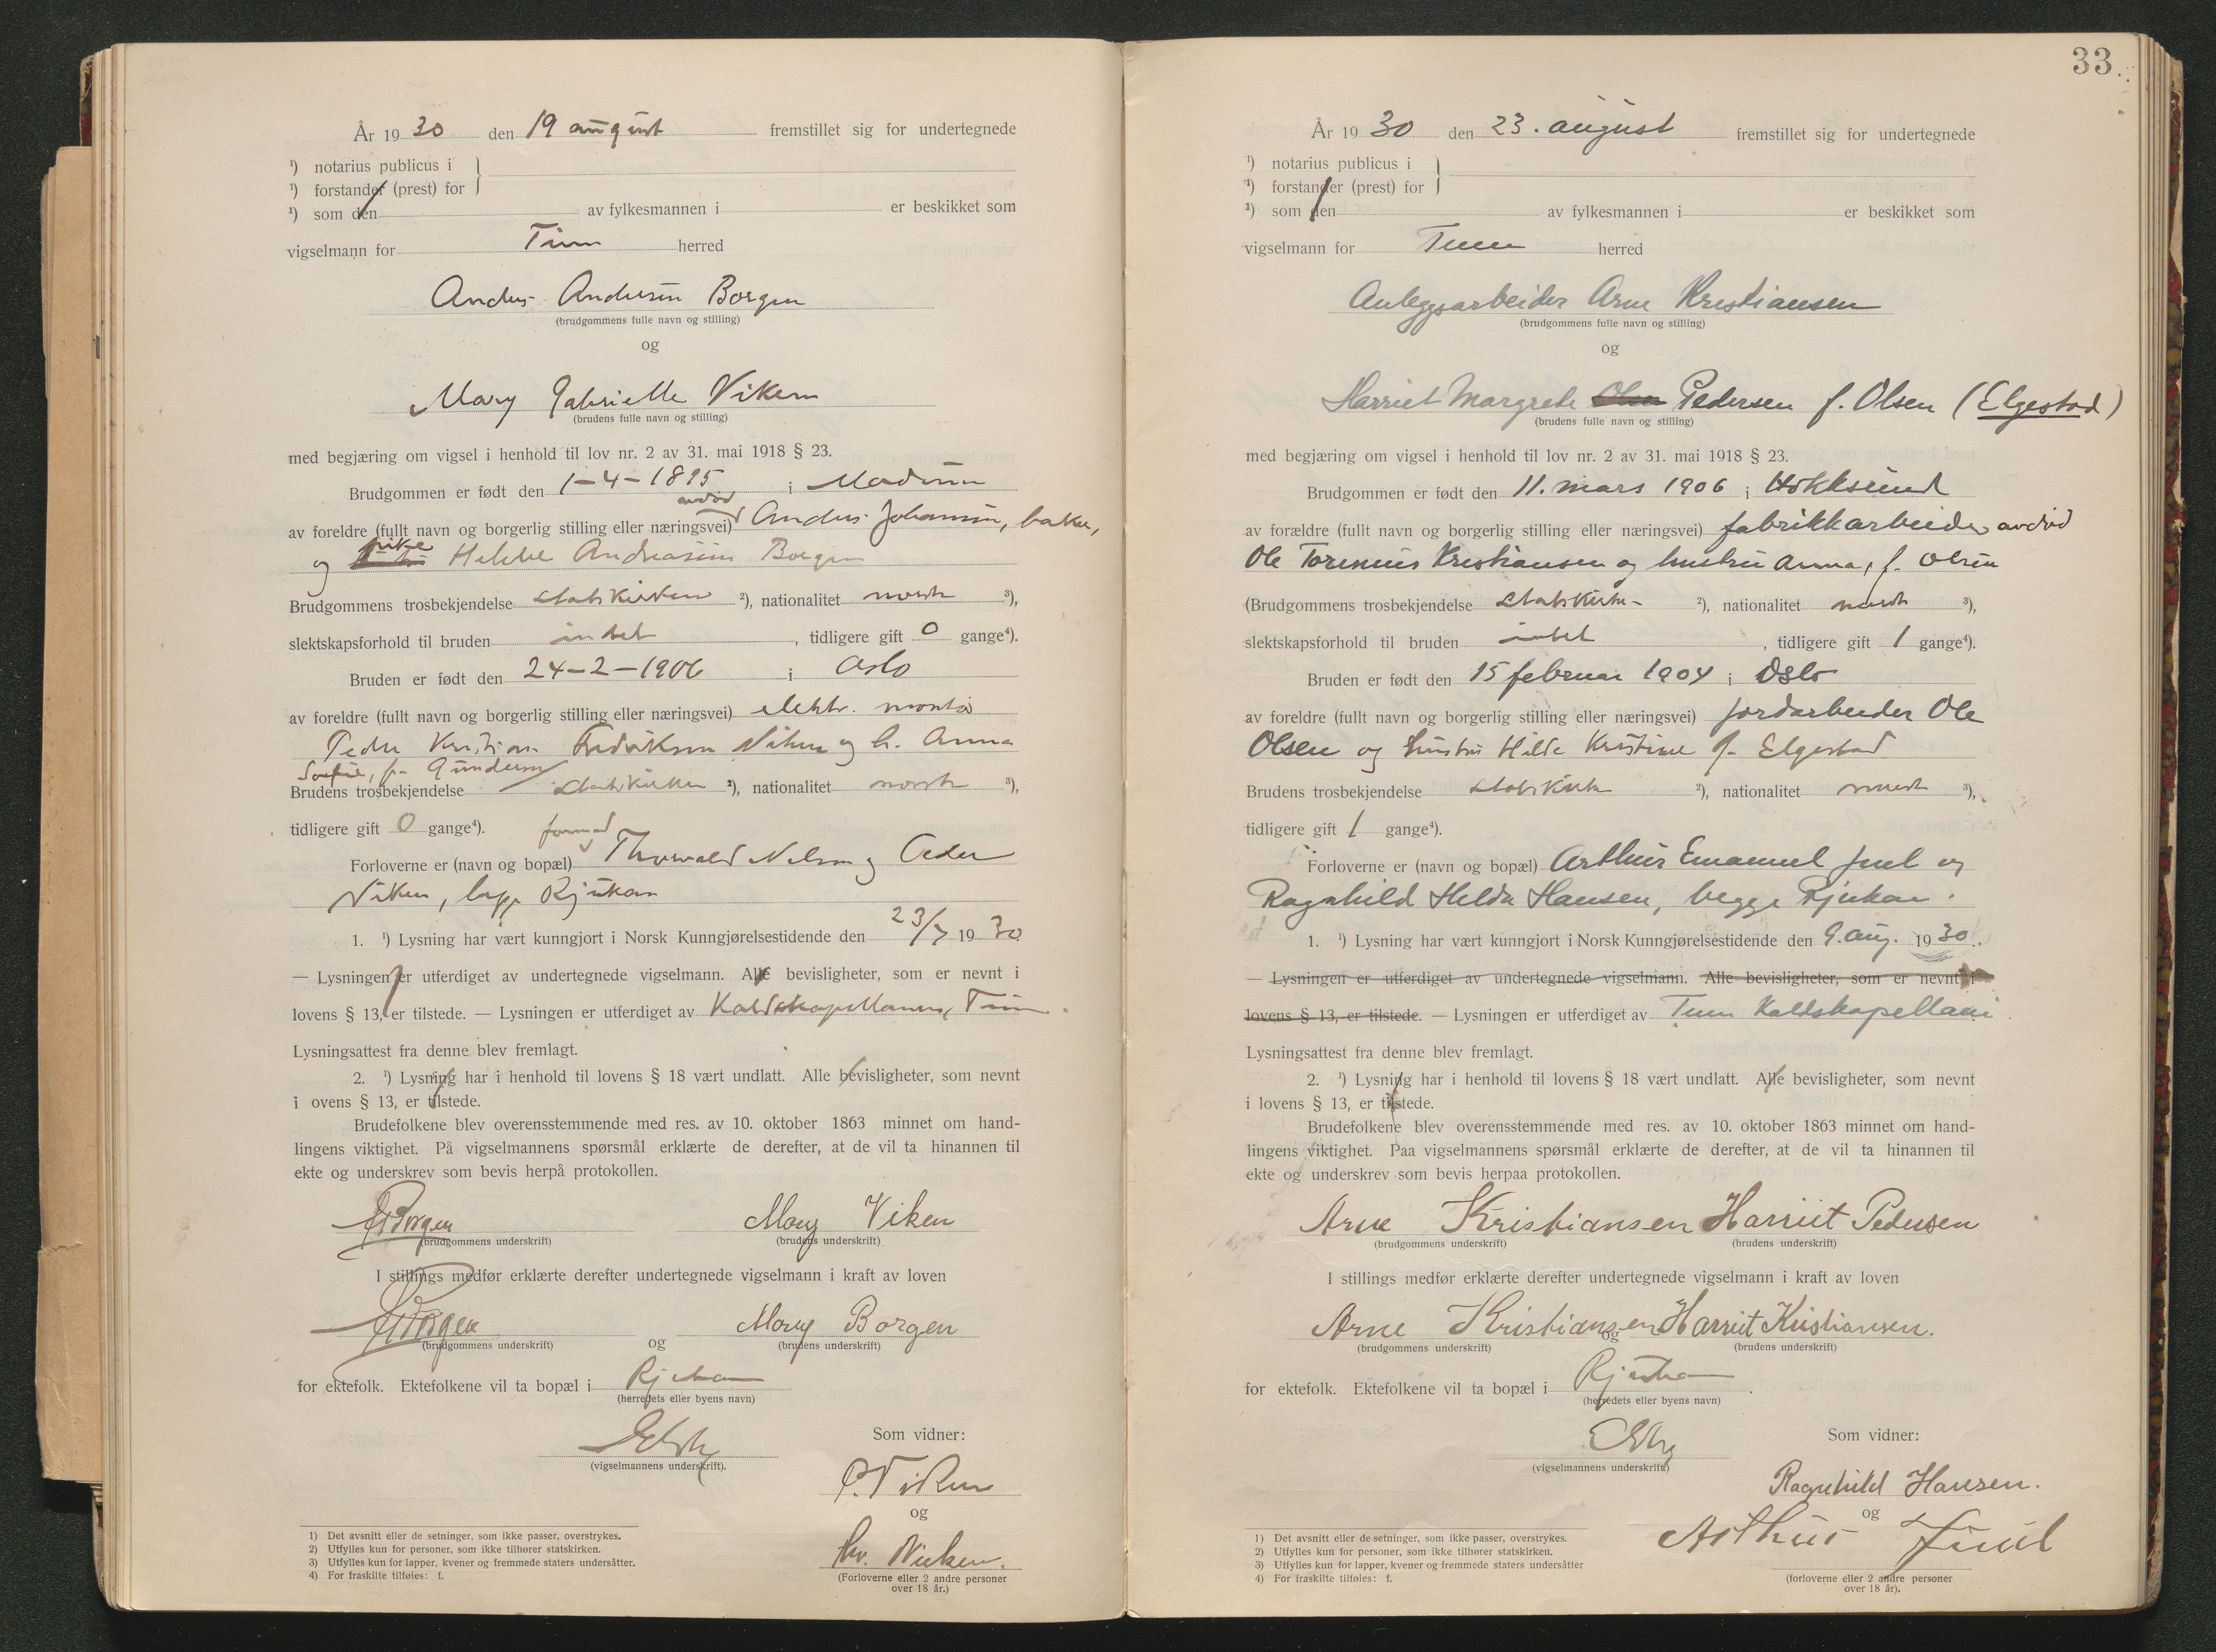 År 1930 den 19 august fremstillet sig for undertegnede
¹) notarius publicus i
¹) forstander (prest) for
¹) som den av fylkesmannen i er beskikket som
vigselmann for Tinn herred
Anders Andersen Borgen
(brudgommens fulle navn og stilling)
og
Mary Gabrielle Viken
(brudens fulle navn og stilling)
med begjæring om vigsel i henhold til lov nr. 2 av 31. mai 1918 § 23.
Brudgommen er født den 1-4-1895 i Modum
avdød
av foreldre (fullt navn og borgerlig stilling eller næringsvei) Anders Johansen, baker,
pike
og Helene Andreasine Borgen
Brudgommens trosbekjendelse statskirken ²), nationalitet norsk ³),
slektskapsforhold til bruden intet, tidligere gift 0 gange⁴).
Bruden er født den 24-2-1906 i Oslo
av foreldre (fullt navn og borgerlig stilling eller næringsvei) elektr. montør
Peder Kristian Fredriksen Viken og h. Anna
Sofie, f. Gundersen
Brudens trosbekjendelse statskirken ²), nationalitet norsk ³),
tidligere gift 0 gange⁴).
formand
Forloverne er (navn og bopæl) Thorvald Nilsen og Peder
Viken, begge Rjukan
1. ¹) Lysning har vært kunngjort i Norsk Kunngjørelsestidende den 23/7 1930
— Lysningen er utferdiget av undertegnede vigselmann. Alle bevisligheter, som er nevnt i
lovens § 13, er tilstede. — Lysningen er utferdiget av Kaldskapellanen, Tinn.
Lysningsattest fra denne blev fremlagt.
2. ¹) Lysning har i henhold til lovens § 18 vært undlatt. Alle bevisligheter, som nevnt
i ovens § 13, er tilstede.
Brudefolkene blev overensstemmende med res. av 10. oktober 1863 minnet om hand-
lingens viktighet. På vigselmannens spørsmål erklærte de derefter, at de vil ta hinannen til
ekte og underskrev som bevis herpå protokollen.
ABorgen Mary Viken
(brudgommens underskrift) (brudens underskrift)
I stillings medfør erklærte derefter undertegnede vigselmann i kraft av loven
ABorgen og Mary Borgen
(brudgommens underskrift) (brudens underskrift)
for ektefolk. Ektefolkene vil ta bopæl i Rjukan
(herredets eller byens navn)
Som vidner:
(vigselmannens underskrift).
P. Viken
og
(Forloverne eller 2 andre personer
over 18 år.)
1) Det avsnitt eller de setninger, som ikke passer, overstrykes.
2) Utfylles kun for personer, som ikke tilhører statskirken.
3) Utfylles kun for lapper, kvener og fremmede staters undersåtter.
4) For fraskilte tilføies: f.
33.
År 1930 den 23. august fremstillet sig for undertegnede
¹) notarius publicus i
¹) forstander (prest) for
¹) som den av fylkesmannen i er beskikket som
vigselmann for Tinn herred
Anleggsarbeider Arne Kristiansen
(brudgommens fulle navn og stilling)
og
Harriet Margrete Olsen Pedersen f. Olsen (Elgestad)
(brudens fulle navn og stilling)
med begjæring om vigsel i henhold til lov nr. 2 av 31. mai 1918 § 23.
Brudgommen er født den 11. mars 1906 i Hokksund
av forældre (fullt navn og borgerlig stilling eller næringsvei) fabrikkarbeider avdød
Ole Torenius Kristiansen og hustru Anna, f. Olsen
(Brudgommens trosbekjendelse statskirken ²), nationalitet norsk ³),
slektskapsforhold til bruden intet, tidligere gift 1 gange⁴).
Bruden er født den 15 februar 1904 i Oslo
av foreldre (fullt navn og borgerlig stilling eller næringsvei) jordarbeider Ole
Olsen og hustru Hilda Kristine f. Elgestad
Brudens trosbekjendelse statskirken ²), nationalitet norsk ³),
tidligere gift 1 gange⁴).
Forloverne er (navn og bopæl) Arthur Emanuel Juul og
Ragnhild Helda Hansen, begge Rjukan.
1. ¹) Lysning har vært kunngjort i Norsk Kunngjørelsestidende den 9. aug. 1930.
— Lysningen er utferdiget av undertegnede vigselmann. Alle bevisligheter, som er nevnt i
lovens § 13, er tilstede. — Lysningen er utferdiget av Tinn Kaldskapellani
Lysningsattest fra denne blev fremlagt.
2. ¹) Lysning har i henhold til lovens § 18 vært undlatt. Alle bevisligheter, som nevnt
i lovens § 13, er tilstede.
Brudefolkene blev overensstemmende med res. av 10. oktober 1863 minnet om hand-
lingens viktighet. Paa vigselmannens spørsmål erklærte de derefter, at de vil ta hinannen til
ekte og underskrev som bevis herpaa protokollen.
Arne Kristiansen Harriet Pedersen
(brudgommens underskrift) (brudens underskrift)
I stillings medfør erklærte derefter undertegnede vigselmann i kraft av loven
Arne Kristiansen og Harriet Kristiansen.
(brudgommens underskrift) (brudens underskrift)
for ektefolk. Ektefolkene vil ta bopæl i Rjukan.
(herredets eller byens navn)
Som vidner:
(vigselmannens underskrift)
Ragnhild Hansen.
og
Arthur Juul
(forloverne eller 2 andre personer
over 18 år).
1) Det avsnitt eller de setninger, som ikke passer, overstrykes.
2) Utfylles kun for personer, som ikke tilhører statskirken.
3) Utfylles kun for lapper, kvener og fremmede staters undersåtter
4) For fraskilte tilføies: f.